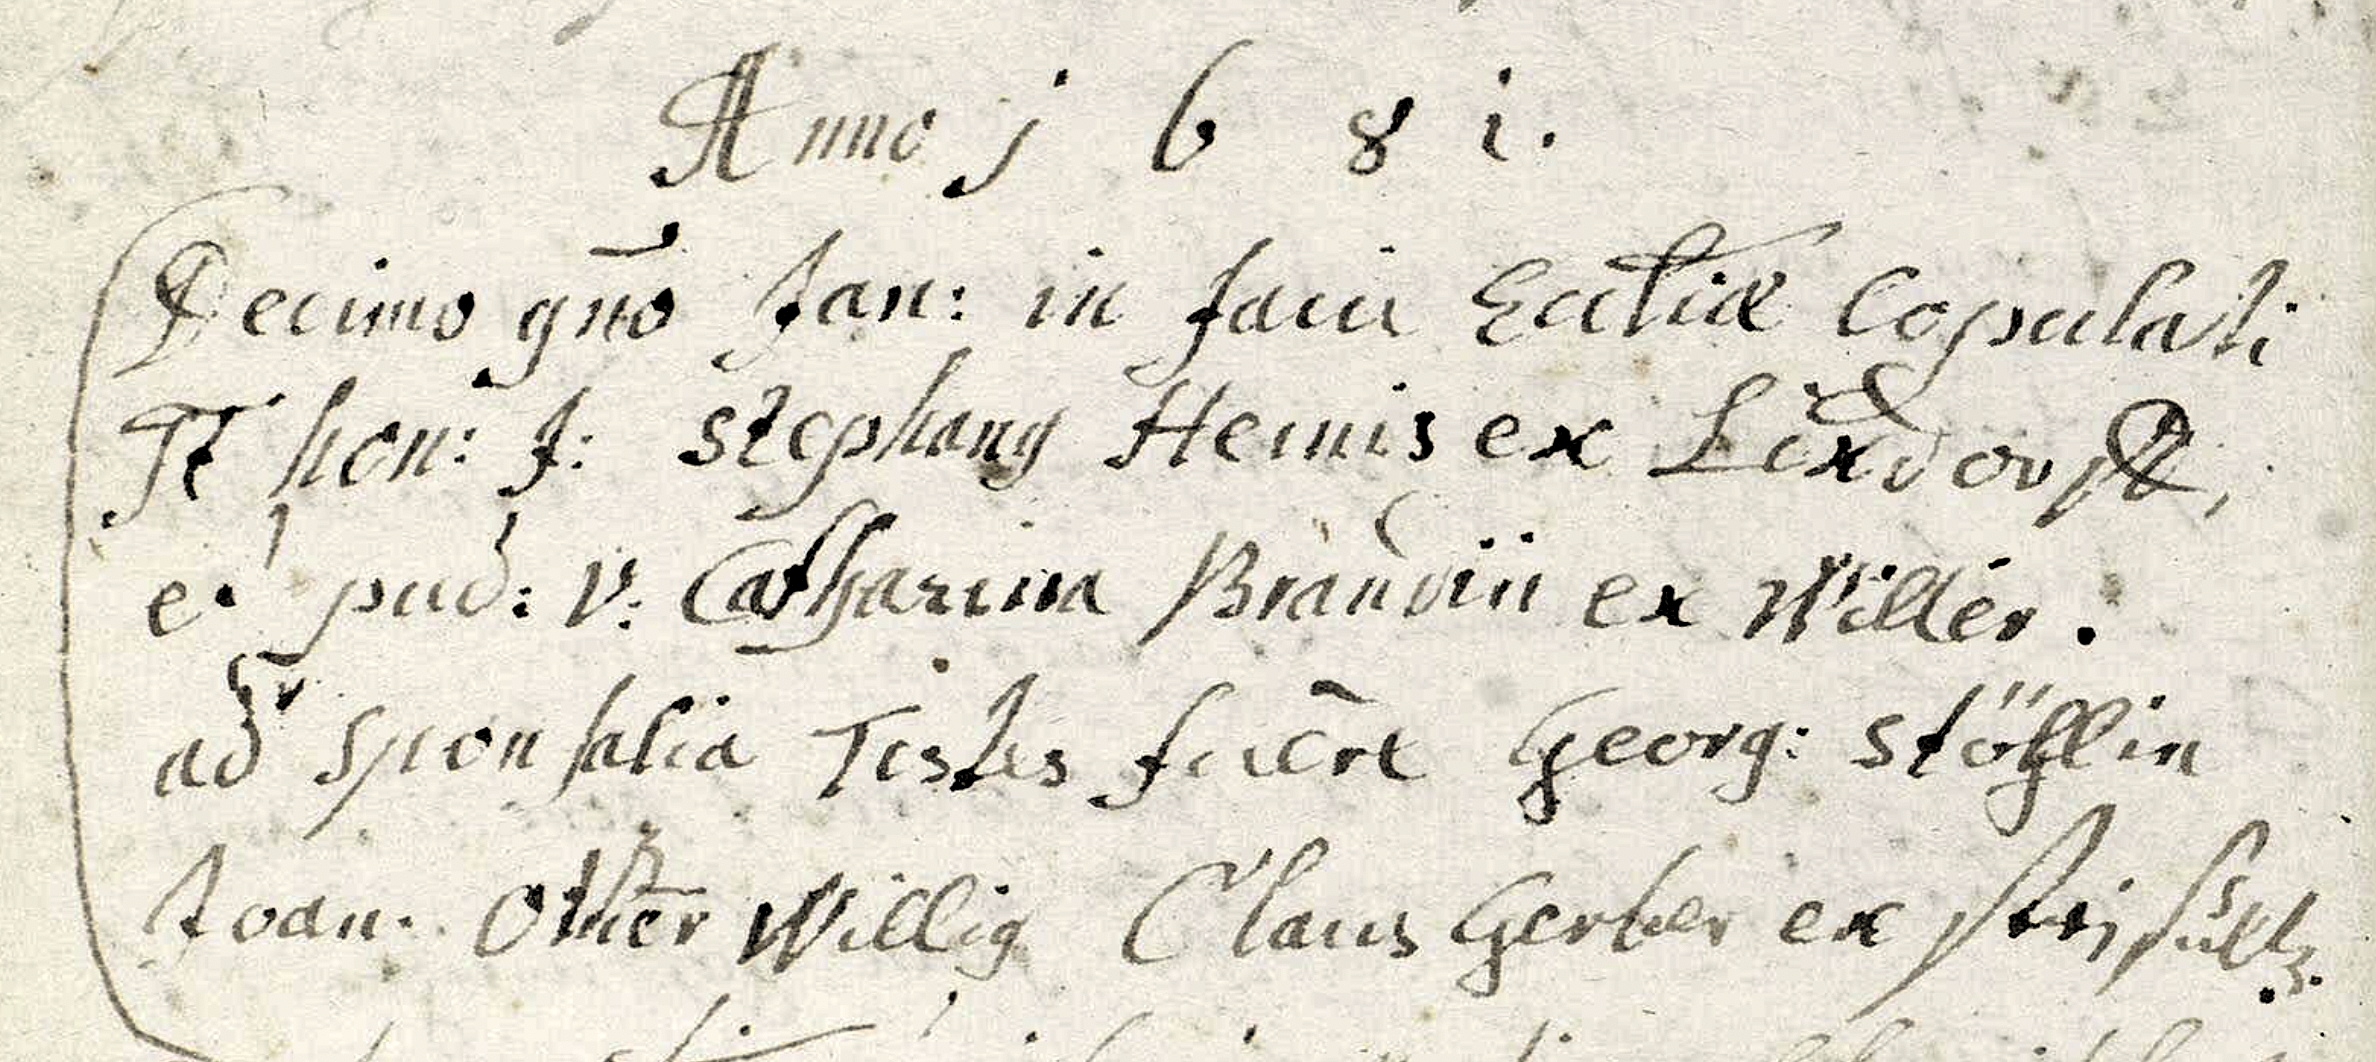 Anno j 6 8 i.
Decimo qnõ Jan: in facie Eccliæ Copulati
st hon: J: Stephang Hemis ex
et pud: V: Catharina Braunin ex Willer.
ad sponsalia Testes fuere Georg: Stößlin
Joan: Otmer Willig Claus Gerber ex